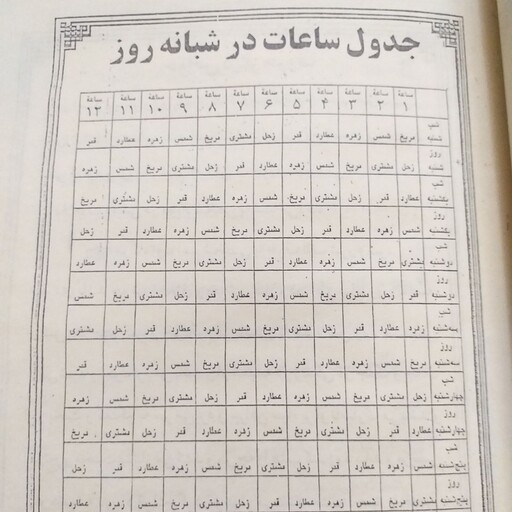 جدول ساعات در شبانه روز
ساعة ساعة ساعة ساعة ساعة ساعة ساعة ساعة ساعة ساعة ساعة ساعة
۱ ۲ ۳ ۴ ۵ ۶ ۷ ۸ ۹ ۱۰ ۱۱ ۱۲
شب
شنبه مریخ شمس زهره عطارد قمر زحل مشتری مریخ شمس زهره عطارد قمر
روز
شنبه زحل مشتری مریخ شمس زهره عطارد قمر زحل مشتری مریخ شمس زهره
شب
یکشنبه عطارد قمر زحل مشتری مریخ شمس زهره عطارد قمر زحل مشتری مریخ
روز
یکشنبه شمس زهره عطارد قمر زحل مشتری مریخ شمس زهره عطارد قمر زحل
شب
دوشنبه مشتری مریخ شمس زهره عطارد قمر زحل مشتری مریخ شمس زهره عطارد
روز
دوشنبه قمر زحل مشتری مریخ شمس زهره عطارد قمر زحل مشتری مریخ شمس
شب
سه‌شنبه زهره عطارد قمر زحل مشتری مریخ شمس زهره عطارد قمر زحل مشتری
روز
سه‌شنبه مریخ شمس زهره عطارد قمر زحل مشتری مریخ شمس زهره عطارد قمر
شب
چهارشنبه زحل مشتری مریخ شمس زهره عطارد قمر زحل مشتری مریخ شمس زهره
روز
چهارشنبه عطارد قمر زحل مشتری مریخ شمس زهره عطارد قمر زحل مشتری مریخ
شب
پنج‌شنبه شمس زهره عطارد قمر زحل مشتری مریخ شمس زهره عطارد قمر زحل
روز
پنج‌شنبه مشتری مریخ شمس زهره عطارد قمر زحل مشتری مریخ شمس زهره عطارد